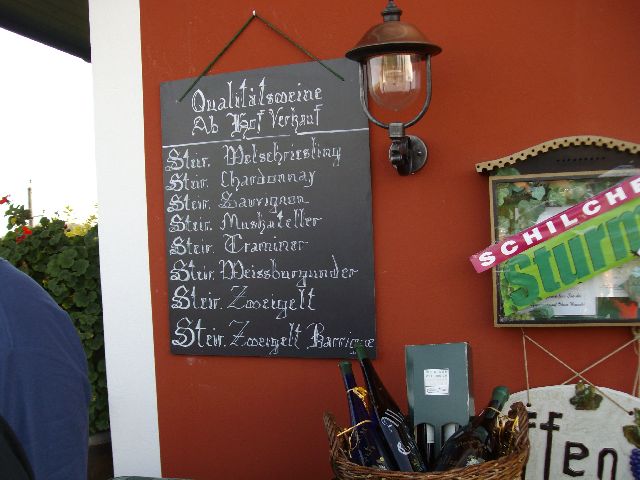 Qualitätsweine
Ab Hof Verkauf
Steir. Welschriesling
Steir. Chardonnay
Steir. Sauvignon
Steir. Muskateller
Steir. Traminer
Steir. Weissburgunder
Steir. Zweigelt
Steir. Zweigelt Barrique
SCHILCHE
Sturm
ffen